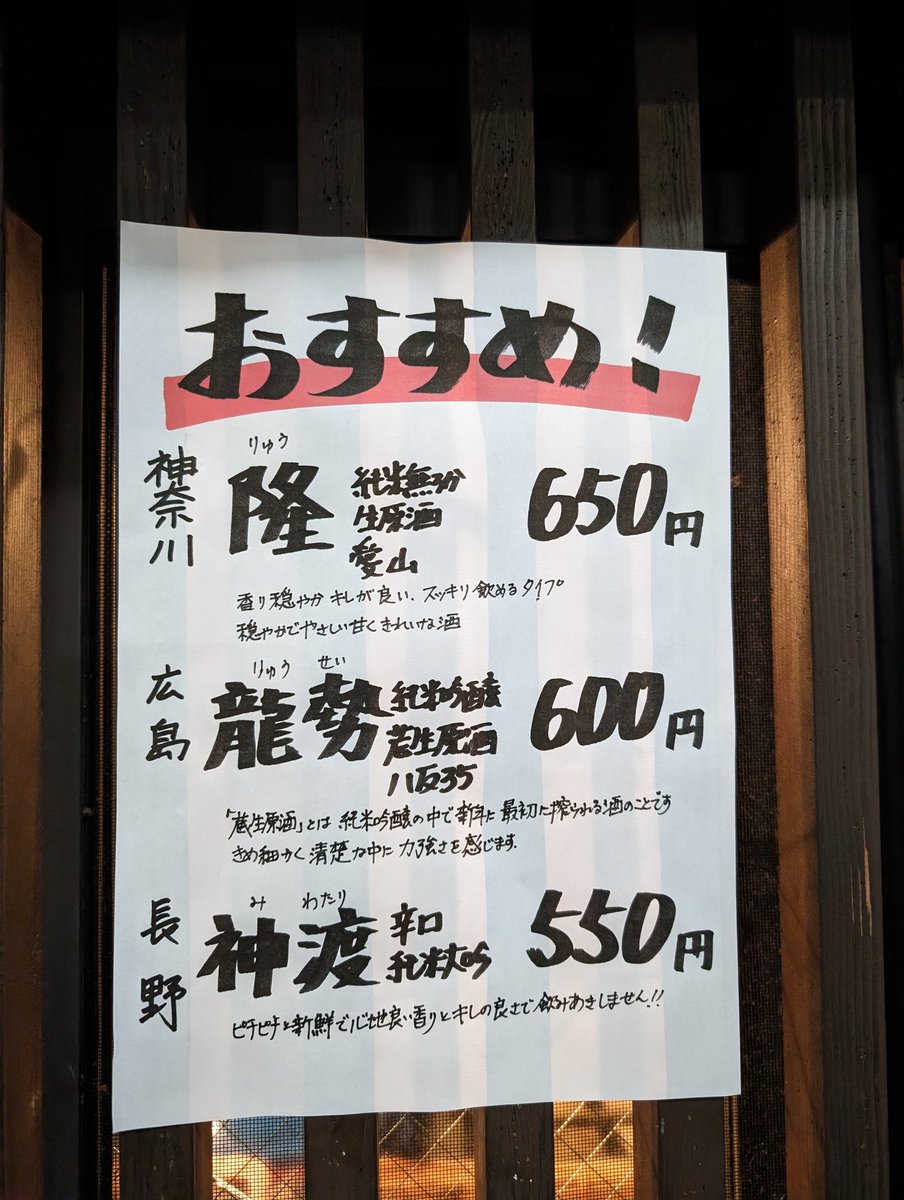 おすすめ!
神奈川
りゅう
隆
純米無ろ過
生原酒
愛山
650円
香り穏やか キレが良い、スッキリ飲めるタイプ
穏やかでやさしい甘くきれいな酒
広島
りゅう せい
龍勢
純米吟醸
蔵生原酒
八反35
600円
「蔵生原酒」とは 純米吟醸の中で新年に 最初に搾られる酒のことです
きめ細かく 清楚な中に 力強さを感じます.
長野
み わたり
神渡
辛口
純米大吟
550円
ピチピチと新鮮で心地良い香りとキレの良さで飲みあきしません!!